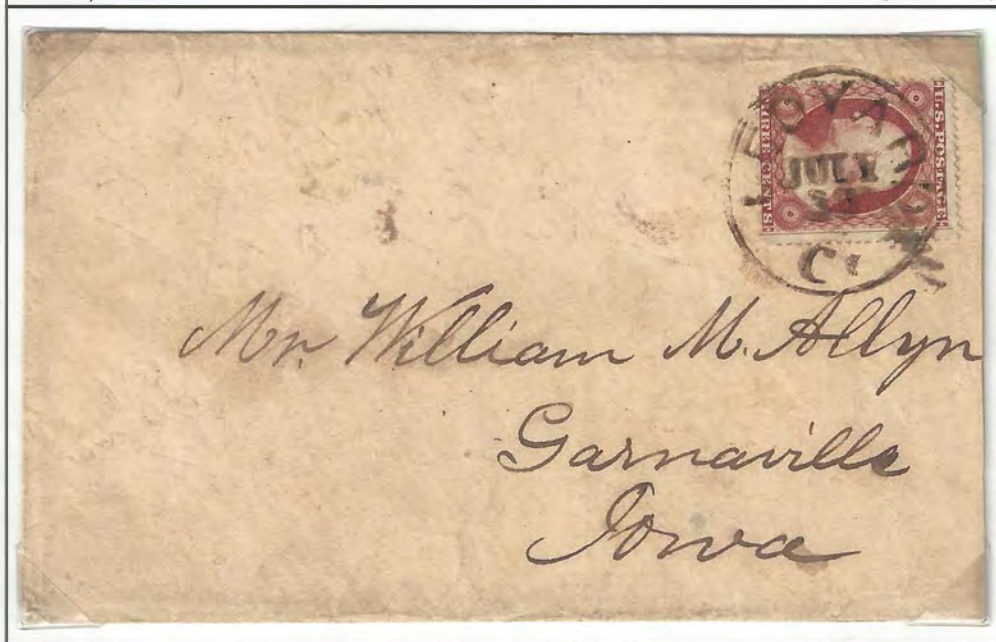 U.S. POSTAGE
THREE CENTS
JULY
Mr. William M. Allyn
Garnaville
Iowa